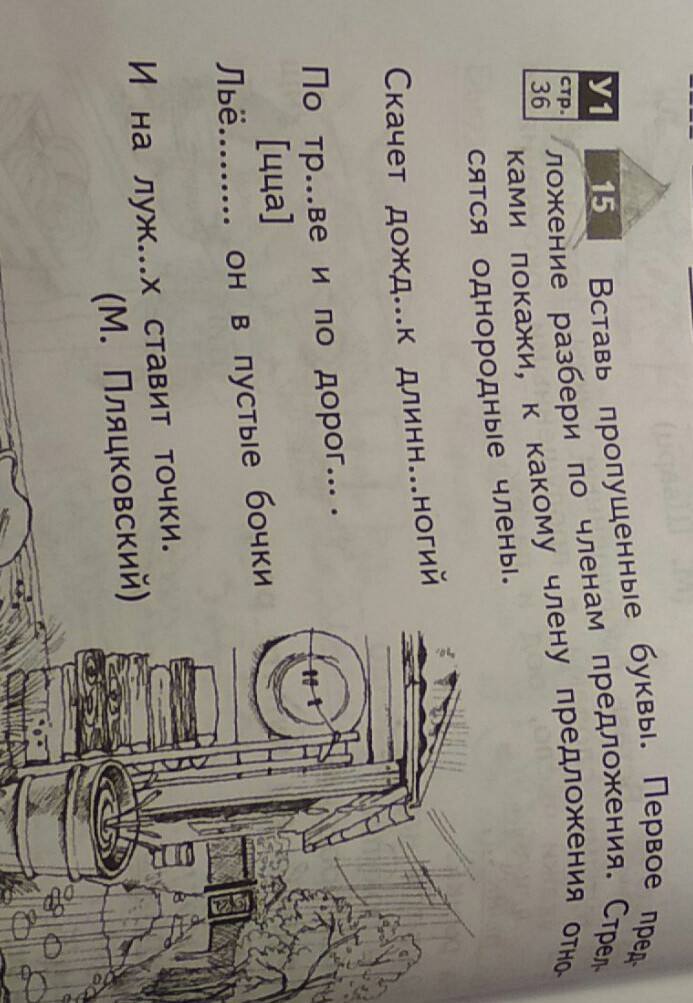 У1
стр.
36
15 Вставь пропущенные буквы. Первое пред-
ложение разбери по членам предложения. Стрел-
ками покажи, к какому члену предложения отно-
сятся однородные члены.
Скачет дожд...к длинн...ногий
По тр...ве и по дорог... .
[цца]
Льё......... он в пустые бочки
И на луж...х ставит точки.
(М. Пляцковский)